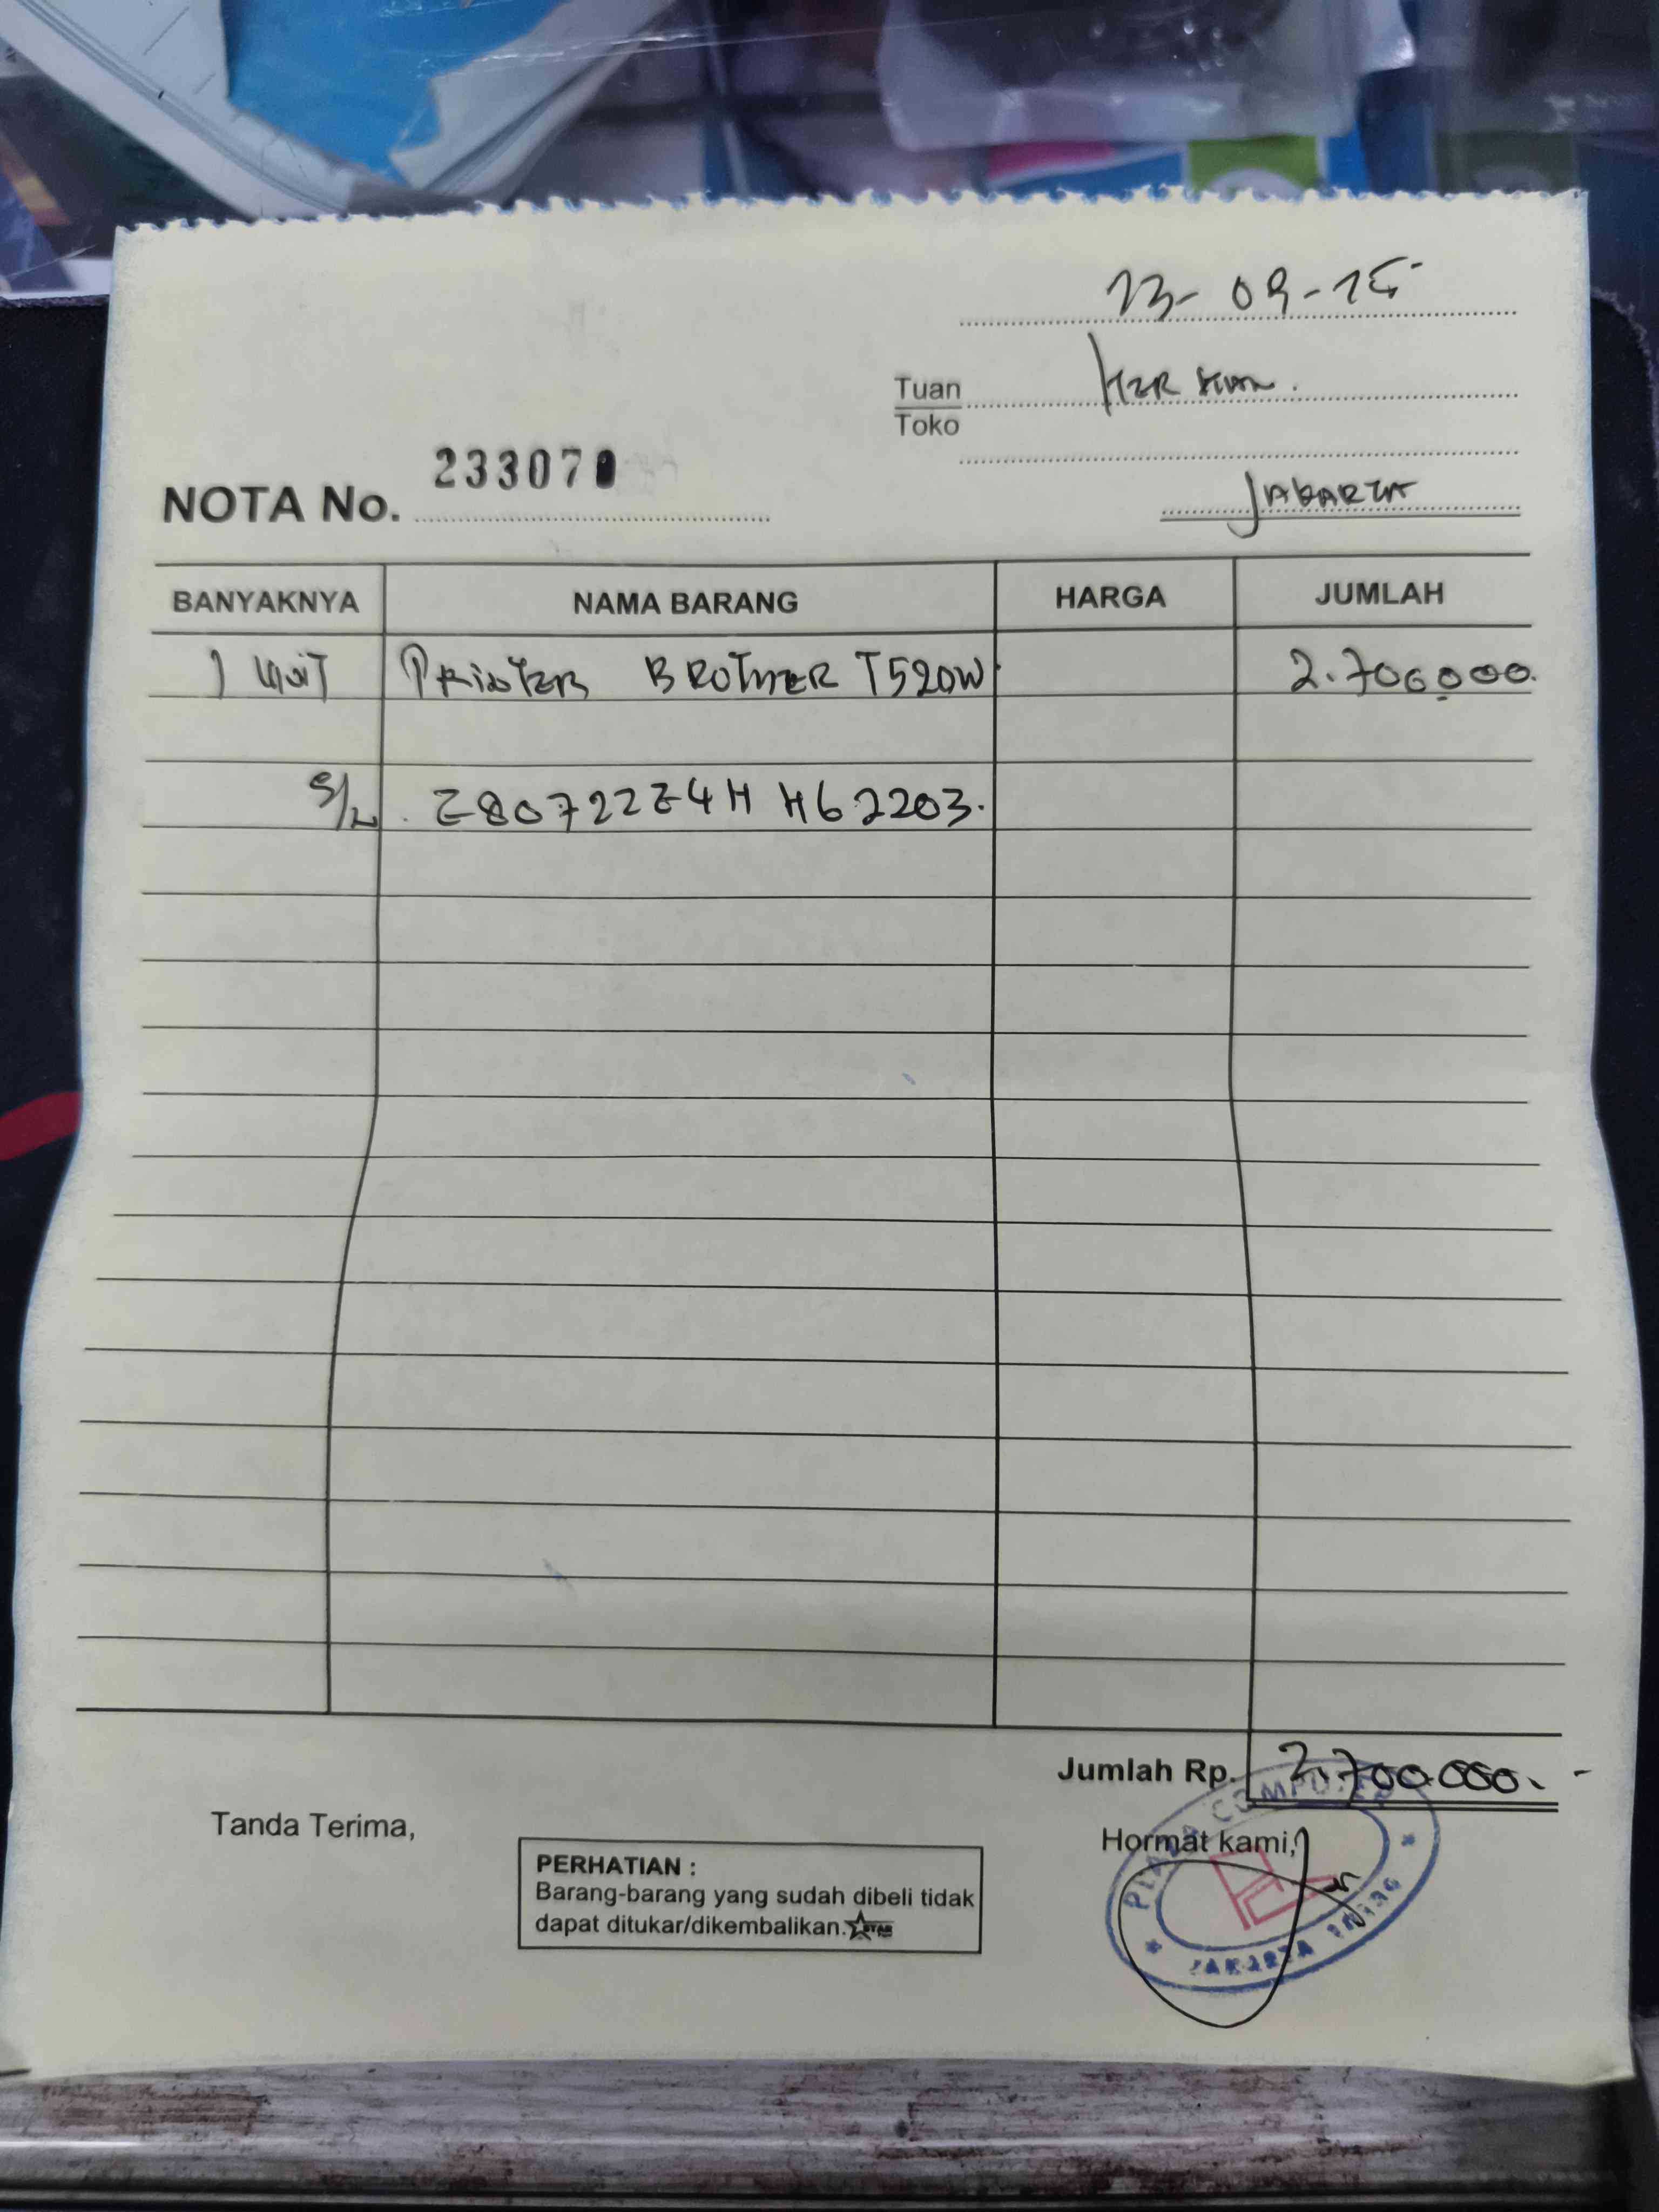 23-09-25
Tuan
Toko
HERMAN.
JAKARTA
NOTA No. 233070
BANYAKNYA NAMA BARANG HARGA JUMLAH
1 UNIT PRINTER BROTHER T520W 2.700.000.
S/N. E80722Z4H H62203.
Jumlah Rp. 2.700.000.-
Tanda Terima,
PERHATIAN :
Barang-barang yang sudah dibeli tidak
dapat ditukar/dikembalikan. STAR
Hormat kami,
PLAZA COMPUTER
JAKARTA